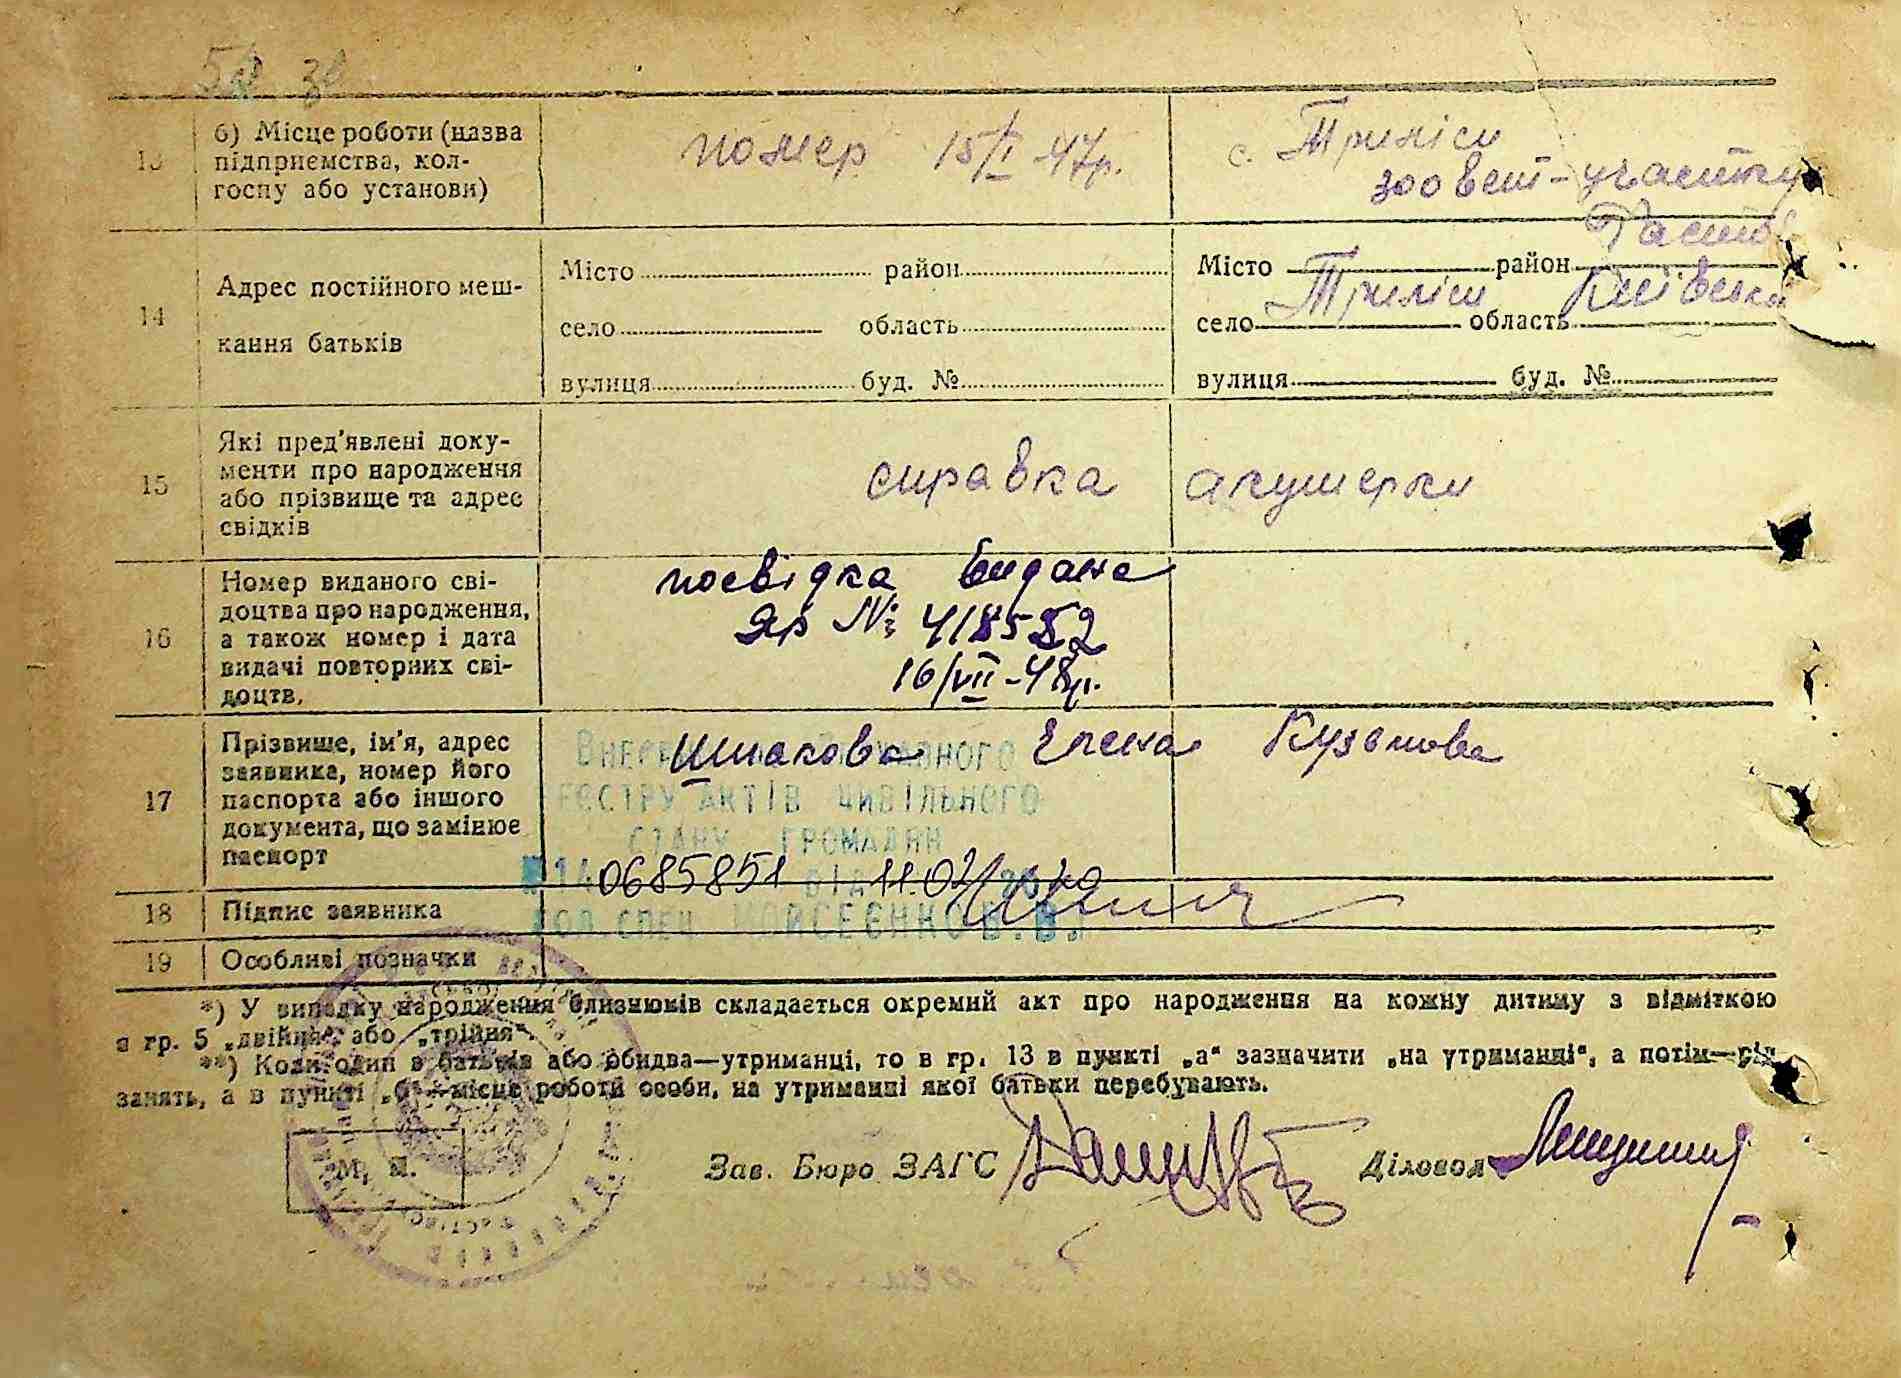 13 б) Місце роботи (назва
підприємства, кол-
госпу або установи)
помер 15/I 47р.
с. Триліси
зоовет-участку
14 Адрес постійного меш-
кання батьків
Місто район
село область
вулиця буд. №
Фастів
Місто район
Триліси Київська
село область
вулиця буд. №
15 Які пред'явлені доку-
менти про народження
або прізвище та адрес
свідків
справка акушерки
16 Номер виданого сві-
доцтва про народження,
а також номер і дата
видачі повторних сві-
доцтв.
посвідка видана
ЯР № 418552
16/VII-48р.
17 Прізвище, ім'я, адрес
заявника, номер його
паспорта або іншого
документа, що замінює
паспорт
Шпакова Елена Кузьмовна
Державного
реєстру актів цивільного
стану громадян
№14 0685851 від 11.02 2020
18 Підпис заявника
Моисеєнко В.В.
19 Особливі позначки
*) У випадку народження близнюків складається окремий акт про народження на кожну дитину з відміткою
в гр. 5 „двійня" або „трійня".
**) Коли один з батьків або обидва—утриманці, то в гр. 13 в пункті „а" зазначити „на утриманні", а потім—рід
занять, а в пункті „б"—місце роботи особи, на утриманні якої батьки перебувають.
М. П.
Зав. Бюро ЗАГС
Діловод